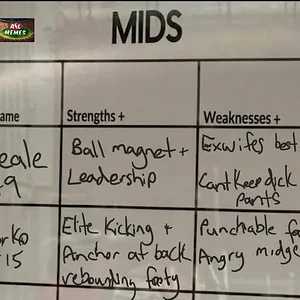 AFL
MEMES
MIDS
ame
Strengths +
Weaknesses +
eale
9
Ball magnet +
Leadership
Exwifes best
Cant keep dick
pants
rko
15
Elite Kicking +
Anchor at back
rebounding footy
Punchable fa
Angry midge